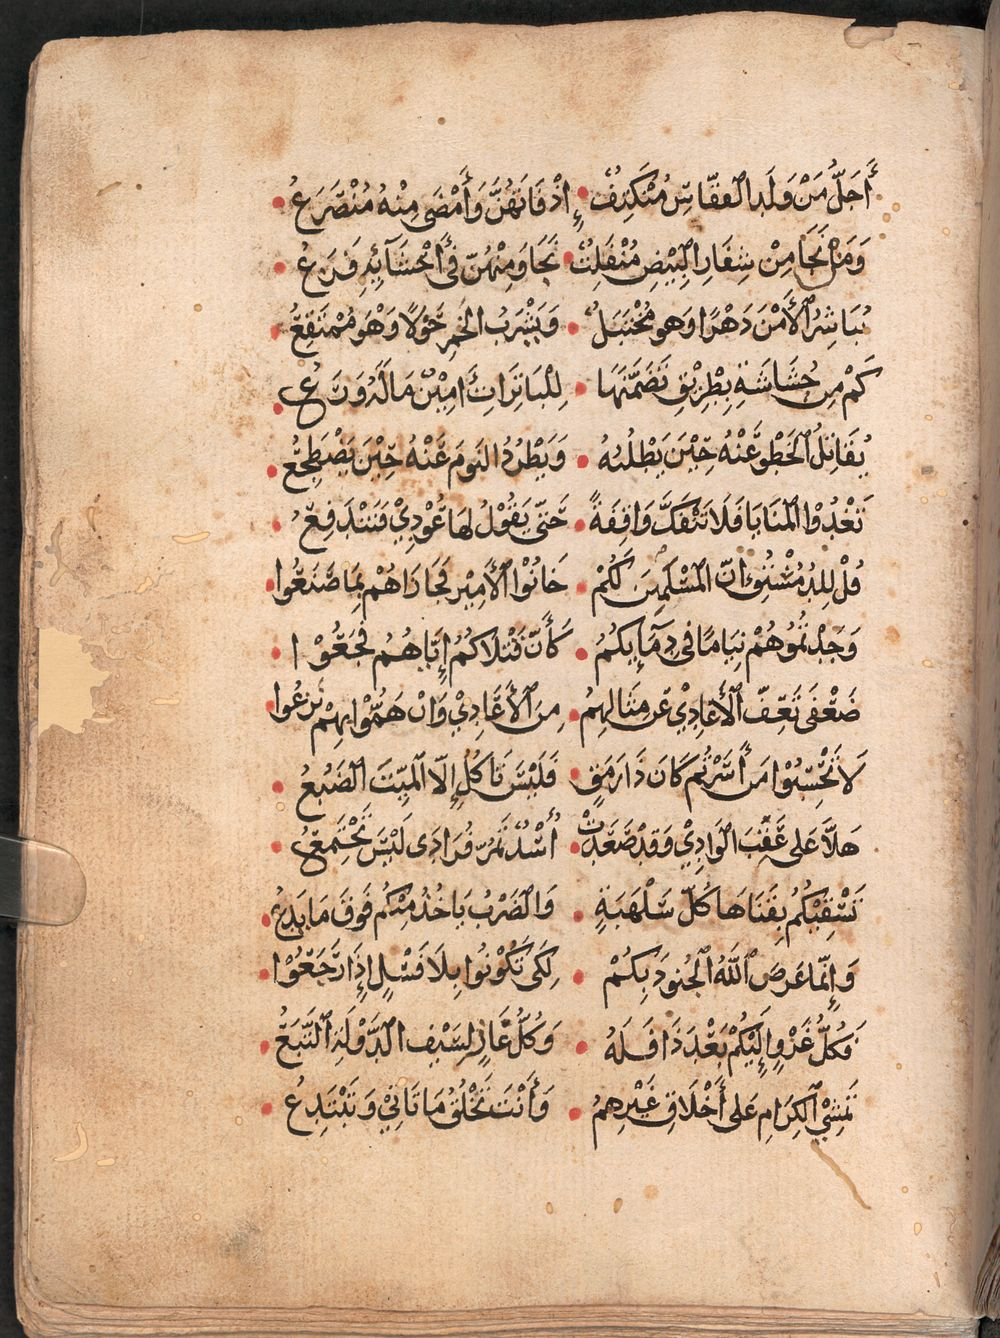 أَجَلُّ مَنْ وَلَدَ الفقّاسِ مُنْكَتِفٌ • إِذْ فَاتَهُنَّ وَأَمْضَى مِنْهُ مُنْصَرَعُ •
وَمَا نَجَا مِنْ شِفَارِ البِيْضِ مُنْفَلِتٌ • نَجَا وَمِنْهُنّ فِي أَحْشَآئِهِ فَزَعُ •
يُبَاشِرُ الأَمْنَ دَهْرًا وَهو مُخْتَبَلٌ • وَيَشْرَبُ الخَمرَ حَوْلًا وَهْوَ مُمْتَقِعُ •
كَمْ مِن حُشَاشَةِ بِطْرِيْقٍ تَضَمَّنَهَا • لِلبَاتِرَاتِ أَمِيْنٌ مَا لَهُ وَرَعُ •
يُقَاتِلُ الخَطْوَ عَنْهُ حِيْنَ يَطْلُبُهُ • وَيَطْرُدُ النومَ عَنْهُ حِيْنَ يَضْطَجِعُ •
تَغْدُوْا المنَايَا فَلَا تَنْفَكّ وَاقِفَةً • حَتّى يَقُوْلَ لهَا عُوْدِيْ فَتَنْدَفِعُ •
قُلْ لِلدُمُسْتُقِ انّ المسْلَمِينَ لَكُمْ • خَانُوْا الأَمِيْر فجَازَاهُمْ بِمَا صَنَعُوا •
وَجَدْتمُوهُمْ نِيَامًا فِي دِمَآيِكُمُ • كَأنّ قَتْلَاكُمُ إِيّاهُمُ فَجَعُوْا •
ضَعْفَى تَعِفّ الأَعَادِيْ عَن مِثَالِهِمُ • مِنَ الأَعَادِيْ وَانْ هَمُّوْا بِهِمْ نزعُوا •
لَا تَحْسِبُوْا مَن أَسَرْتُم كَانَ ذَا رَمَقٍ • فَلَيْسَ تَاكُل إِلّا الميّتَ الضَبُعُ •
هَلَّا عَلى عَقَبِ الوَادِيْ وَقد صَعَدَتْ • أُسْدٌ تَمُرّ فُرَادَى لَيْسَ تَجْتَمِعُ •
تَسْقِيْكُمُ بِقَنَاهَا كُلّ سَلْهَبَةٍ • وَالضَرْبُ يَاخُذُ مِنكُم فَوقَ مَا يَدَعُ •
وَإِنّما عَرضَ اللّهُ الجُنودَ بِكُمْ • لِكَي تَكُوْنُوا بِلَا فَسْلٍ إِذَا رَجَعُوْا •
فكُلُّ غَزْوٍ إِلَيْكُمْ بَعْدَ ذَا فَلَهُ • وَكُلُّ غَازٍ لِسَيْفِ الدّوْلَةِ التَّبَعُ •
تَمشْي الكِرَامِ عَلى أَخْلَاقِ غَيْرِهِمُ • وَأَنْتَ تَخْلُقُ مَا تَاتِيْ وَتَبْتَدِعُ •